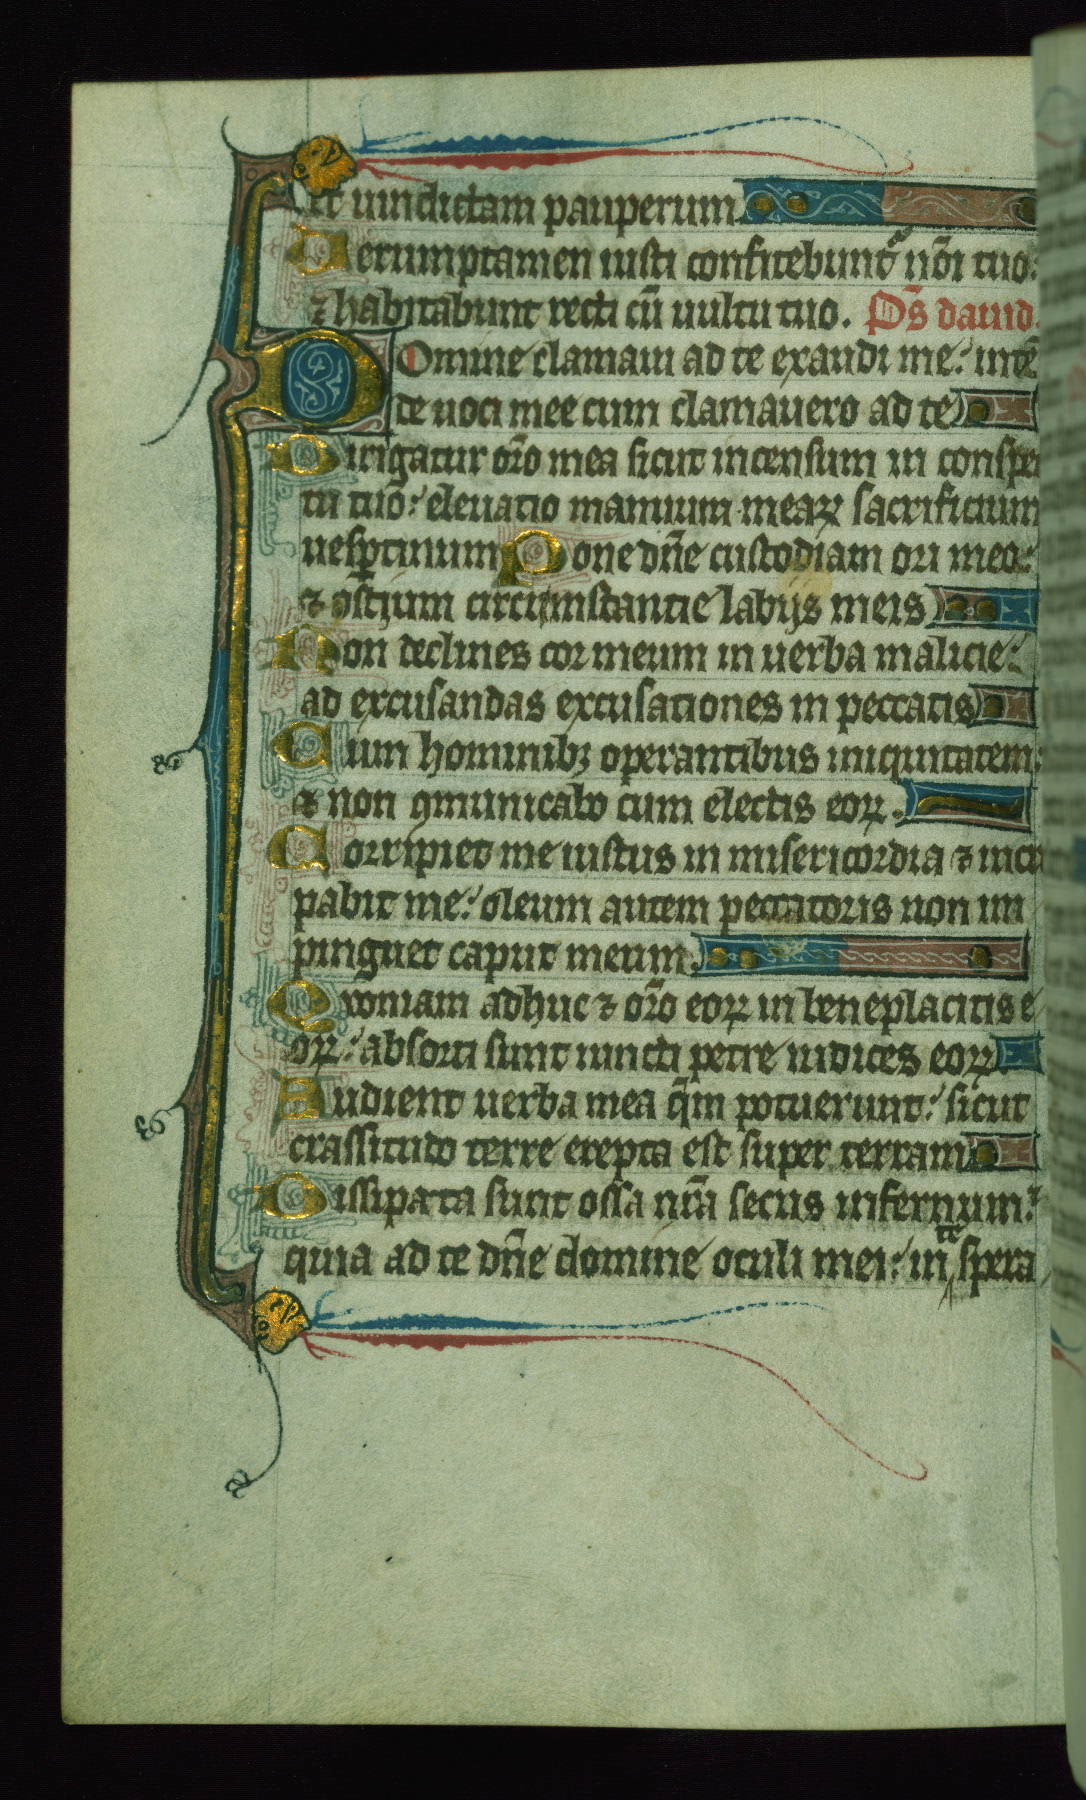 et uindictam pauperum
Uerumptamen iusti confitebunt᷑ nōi tuo:
⁊ habitabunt recti cū uultu tuo. Ps̄ dauid.
Domine clamaui ad te exaudi me: intē
de uoci mee cum clamauero ad te
Dirigatur or̄o mea sicut incensum in conspe
ctu tuo: eleuatio manuum mearꝝ sacrificium
uesp̄tinum Pone dn̄e custodiam ori meo:
⁊ ostium circumstantie labijs meis
Non declines cor meum in uerba malicie:
ad excusandas excusationes in peccatis
Cum hominibꝫ operantibus iniquitatem:
⁊ non ꝯmunicabo cum electis eorꝝ.
Corripiet me iustus in misericordia ⁊ incre
pabit me: oleum autem peccatoris non im
pinguet caput meum.
Quoniam adhuc ⁊ or̄o eorꝝ in beneplacitis e
orꝝ: absorti sunt iuncti petre iudices eorꝝ
Audient uerba mea qm̄ potuerunt: sicut
crassitudo terre erepta est super terram
Dissipata sunt ossa nr̄a secus infernum:
quia ad te dn̄e domine oculi mei: in te spera